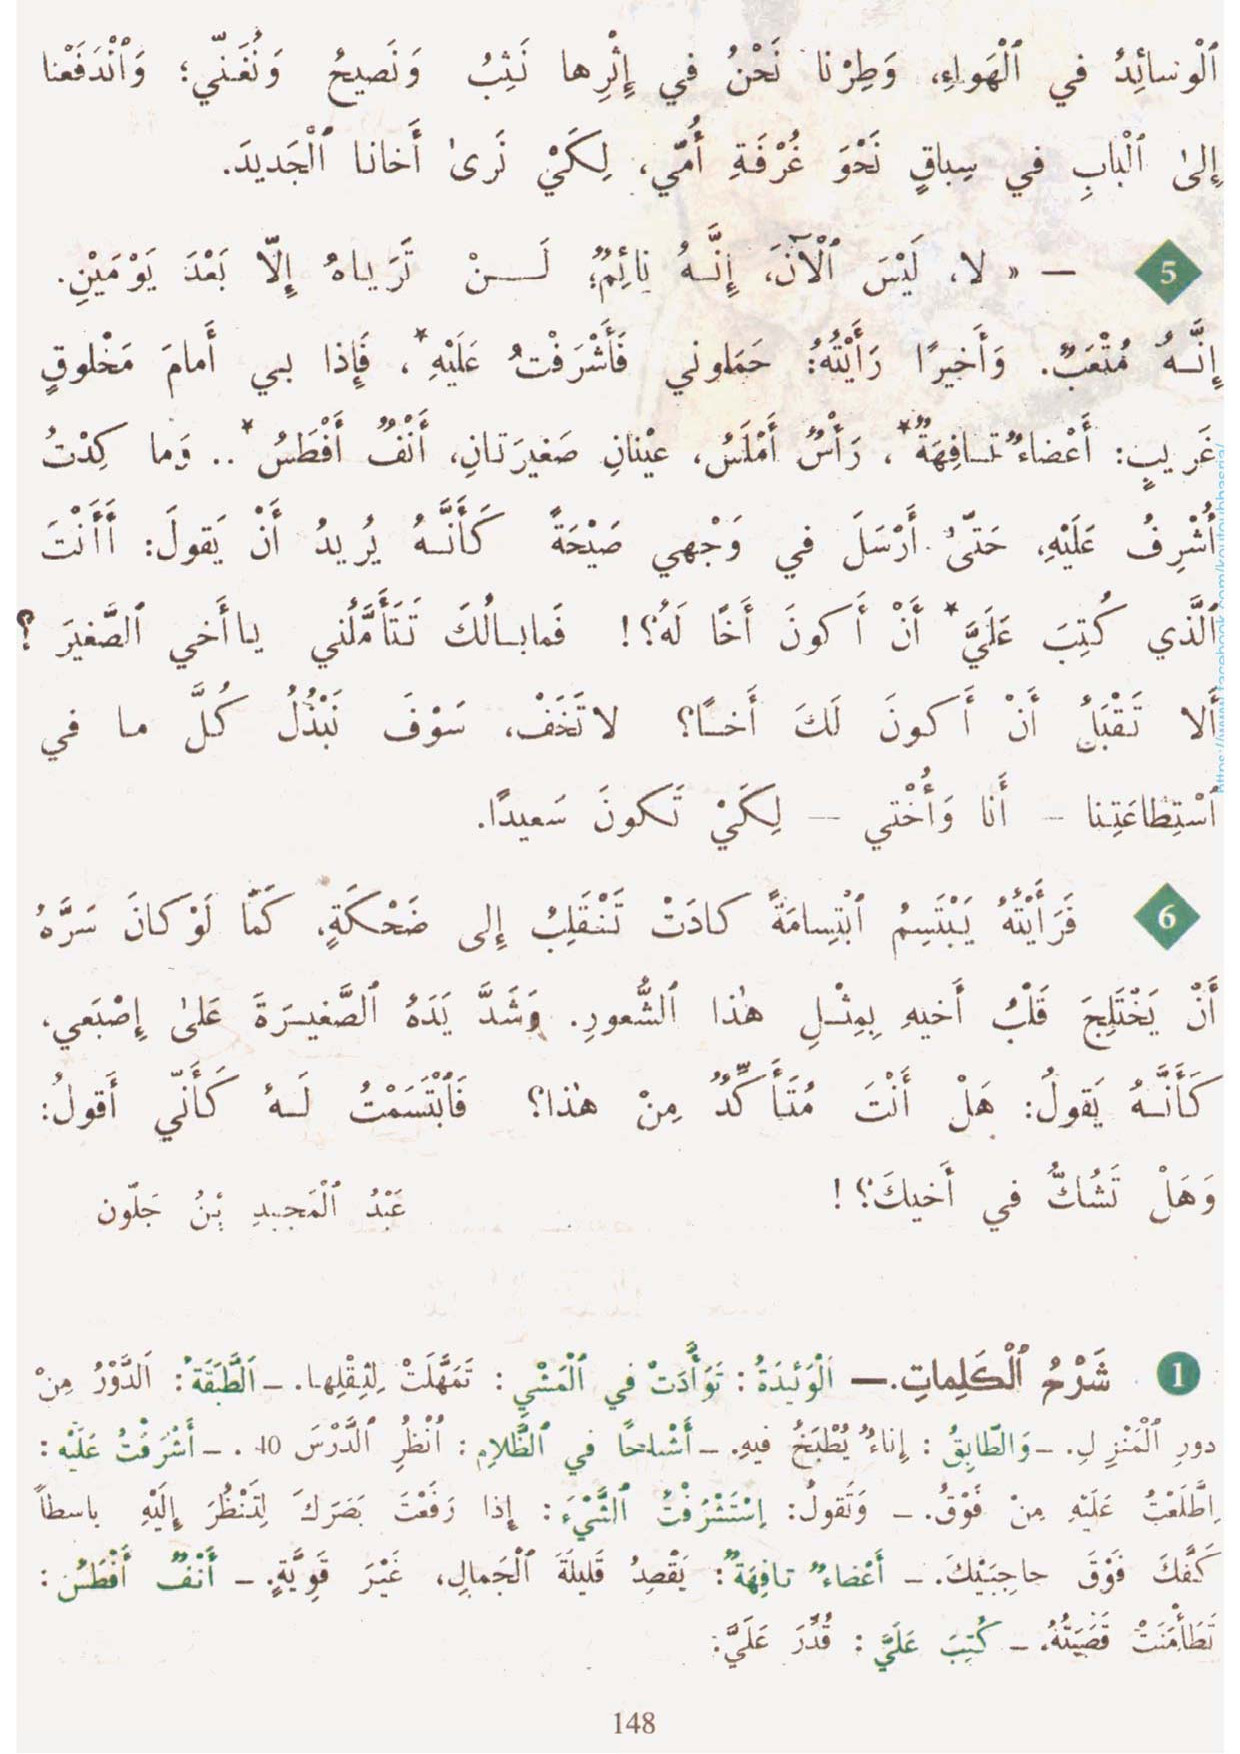 ٱلْوَسائِدُ في ٱلْهَواءِ، وَطِرْنا نَحْنُ في إِثْرِها نَثِبُ وَنَصيحُ وَنُغَنّي؛ وَٱنْدَفَعْنا
إِلىٰ ٱلْبابِ في سِباقٍ نَحْوَ غُرْفَةِ أُمّي، لِكَيْ نَرىٰ أَخانا ٱلْجَديدَ.
5 — « لا، لَيْسَ ٱلْآنَ، إِنَّهُ نائِمٌ؛ لَنْ تَرَياهُ إِلّا بَعْدَ يَوْمَيْنِ.
إِنَّهُ مُتْعَبٌ. وَأَخيرًا رَأَيْتُهُ: حَمَلوني فَأَشْرَفْتُ عَلَيْهِ*، فَإِذا بي أَمامَ مَخْلوقٍ
غَريبٍ: أَعْضاءٌ تافِهَةٌ*، رَأْسٌ أَمْلَسُ، عيْنانِ صَغيرَتانِ، أَنْفٌ أَفْطَسُ* .. وَما كِدْتُ
أُشْرِفُ عَلَيْهِ، حَتّىٰ أَرْسَلَ في وَجْهي صَيْحَةً كَأَنَّهُ يُريدُ أَنْ يَقولَ: أَأَنْتَ
ٱلَّذي كُتِبَ عَلَيَّ* أَنْ أَكونَ أَخًا لَهُ؟! فَمابالُكَ تَتَأَمَّلُني ياأَخي ٱلصَّغيرَ ؟
أَلا تَقْبَلُ أَنْ أَكونَ لَكَ أَخًا؟ لاتَخَفْ، سَوْفَ نَبْذُلُ كُلَّ ما في
ٱسْتِطاعَتِنا – أَنا وَأُخْتي – لِكَيْ تَكونَ سَعيدًا.
6 فَرَأَيْتُهُ يَبْتَسِمُ ٱبْتِسامَةً كادَتْ تَنْقَلِبُ إِلى ضَحْكَةٍ، كَمّا لَوْ كانَ سَرَّهُ
أَنْ يَخْتَلِجَ قَلْبُ أَخيهِ بِمِثْلِ هٰذا ٱلشُّعورِ. وَشَدَّ يَدَهُ ٱلصَّغيرَةَ عَلىٰ إِصْبَعي،
كَأَنَّهُ يَقولُ: هَلْ أَنْتَ مُتَأَكِّدٌ مِنْ هٰذا؟ فَٱبْتَسَمْتُ لَهُ كَأَنّي أَقولُ:
وَهَلْ تَشُكُّ في أَخيكَ؟!
عَبْدُ ٱلْمَجيدِ بْنُ جَلّون
1 شَرْحُ ٱلْكَلِماتِ.— ٱلْوَئيدَةُ : تَوَأَّدَتْ في ٱلْمَشْيِ : تَمَهَّلَتْ لِثِقْلِها. – ٱلطَّبَقَةُ : ٱلدَّوْرُ مِنْ
دورِ ٱلْمَنْزِلِ. – وَالطّابِقُ : إِناءٌ يُطْبَخُ فيهِ. – أَشْباحًا في ٱلظَّلامِ : ٱنْظُرِ ٱلدَّرْسَ 40 . – أَشْرَفْتُ عَلَيْهِ :
اِطَّلَعْتُ عَلَيْهِ مِنْ فَوْقُ. – وَتَقولُ: اِسْتَشْرَفْتُ ٱلشَّيْءَ : إِذا رَفَعْتَ بَصَرَكَ لِتَنْظُرَ إِلَيْهِ باسطاً
كَفَّكَ فَوْقَ حاجِبَيْكَ. – أَعْضاءٌ تافِهَةٌ : يَقْصِدُ قَليلَةَ ٱلْجَمالِ، غَيْرَ قَوِيَّةٍ. – أَنْفٌ أَفْطَسُ :
تَطَأْمَنَتْ قَصَبَتُهُ. – كُتِبَ عَلَيَّ : قُدِّرَ عَلَيَّ:
148
https://www.facebook.com/koutoubhasria/